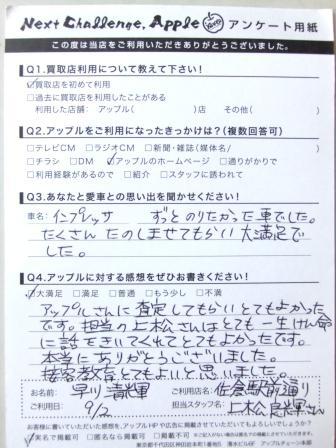 Next Challenge, Apple アンケート用紙
この度は当店をご利用いただきありがとうございました。
Q1.買取店利用について教えて下さい!
☑買取店を初めて利用
□過去に買取店を利用したことがある
利用した店舗: アップル( )店 その他( )
Q2.アップルをご利用になったきっかけは?(複数回答可)
□テレビCM □ラジオCM □新聞・雑誌(媒体名/ )
□チラシ □DM ☑アップルのホームページ □通りがかりで
□利用経験があるので □紹介 □スタッフに誘われて
Q3.あなたと愛車との思い出を聞かせください!
車名: インプレッサ ずっとのりたかった車でした。
たくさん たのしませてもらい 大満足で
した。
Q4.アップルに対する感想をぜひお書きください!
☑大満足 □満足 □普通 □もう少し □不満
アップルさんに査定してもらいとてもよかった
です。担当の上松さんはとても一生けん命
に話をきいてくれてとてもよかったです。
本当にありがとうございました。
接客教育とてもよいと思いました。
お名前: 早川 清輝 ご利用店名: 佐倉駅前通り
ご利用日: 9/2 担当スタッフ名: 上松 良輝さん
お客様に書いていただいた感想を、アップルHPや広告に掲載させていただいてもよろしいでしょうか?
☑実名で掲載可 □匿名なら掲載可 □掲載不可